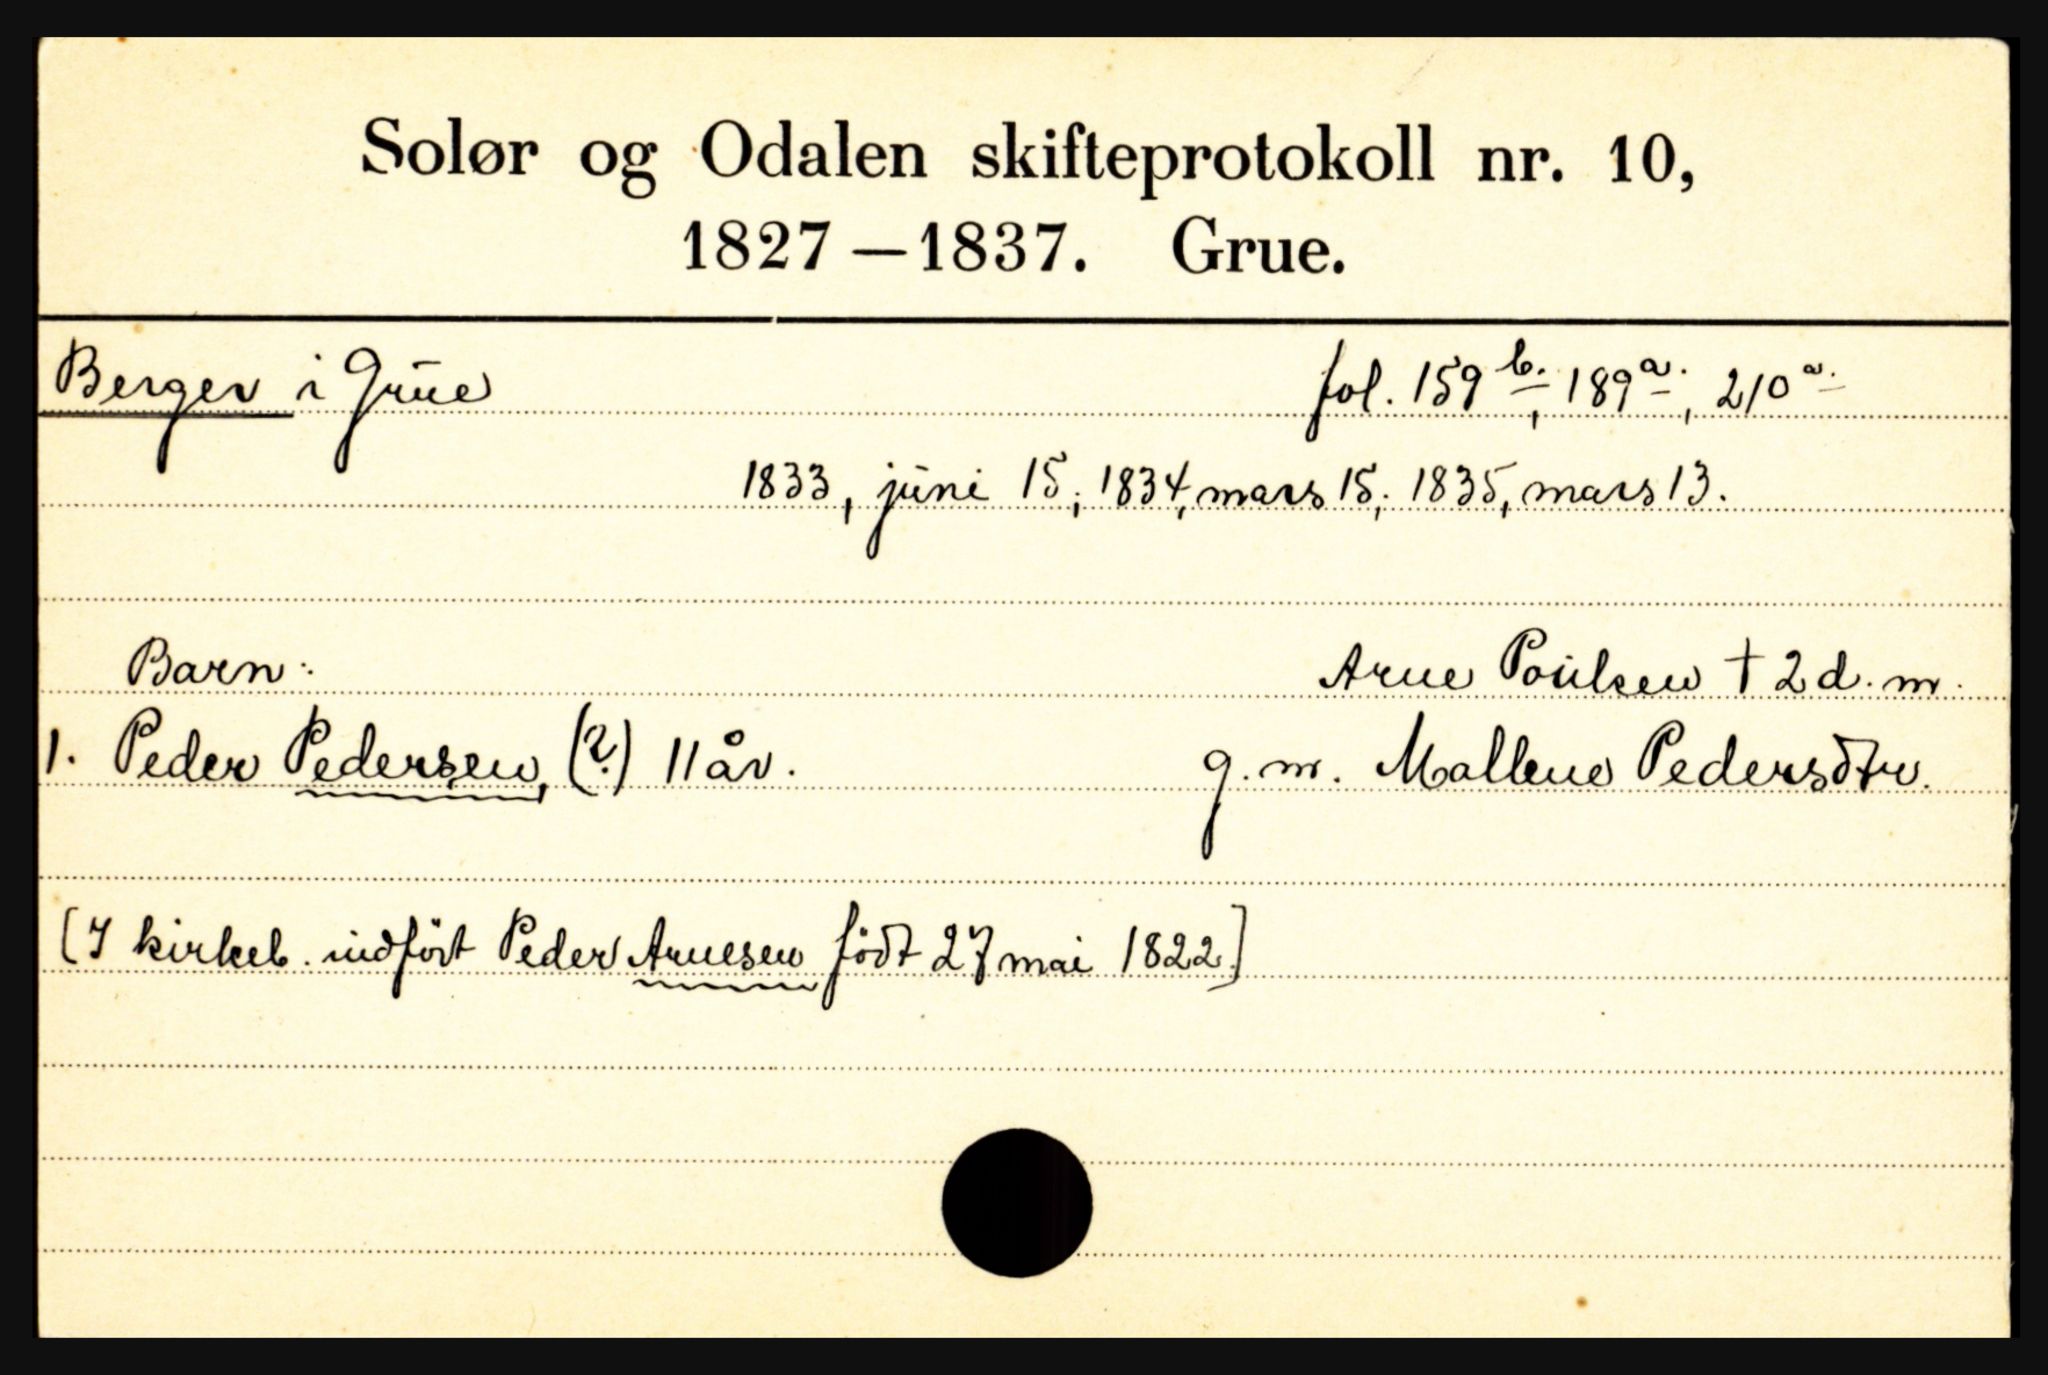 Solør og Odalen skifteprotokoll nr. 10,
1827–1837. Grue.
Berger i Grue fol. 159 b., 189 a., 210 a.
1833, juni 15; 1834, mars 15; 1835, mars 13.
Barn: Arne Poulsen † 2 d. m.
1. Peder Pedersen, (?) 11 år. g. m. Mallene Pedersdtr.
[I kirkeb. indført Peder Arnesen födt 27 mai 1822]